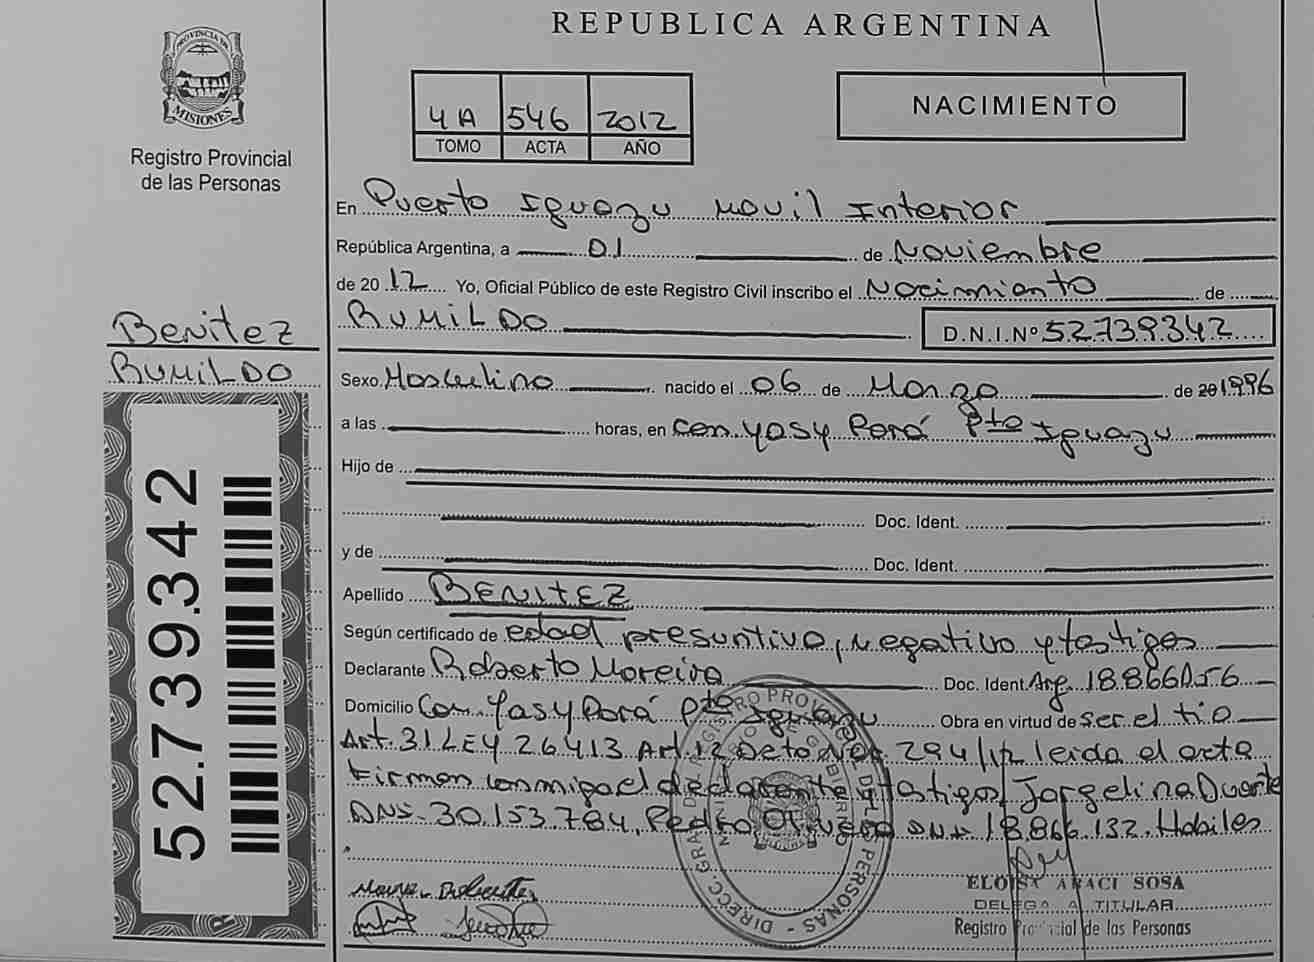 REPUBLICA ARGENTINA
PROVINCIA DE
MISIONES
Registro Provincial
de las Personas
4A 546 2012
TOMO ACTA AÑO
NACIMIENTO
En Puerto Iguazu Movil Interior
República Argentina, a 01 de Noviembre
de 2012 Yo, Oficial Público de este Registro Civil inscribo el Nacimiento de
RUMILDO D.N.I.Nº 52.739.342
Benitez
RUMILDO
52.739.342
Sexo Masculino nacido el 06 de Marzo de 20 1996
a las horas, en Com. Yasy Porá Pto Iguazu
Hijo de
Doc. Ident.
y de
Doc. Ident.
Apellido BENITEZ
Según certificado de edad presuntiva, negativo y testigos
Declarante Roberto Moreira Doc. Ident. Arg. 18.866.156
Domicilio Com. Yasy Porá Pto Iguazu Obra en virtud de ser el tio
Art. 31 LEY 26.413 Art. 12 Dcto Nº 294/12 leida el acta
firman conmigo el declarante y testigos Jorgelina Duarte
DNI. 30.153.784, Pedro Olivera DNI. 18.866.132. Habiles
ELOISA ARACI SOSA
DELEGADA TITULAR
Registro Provincial de las Personas